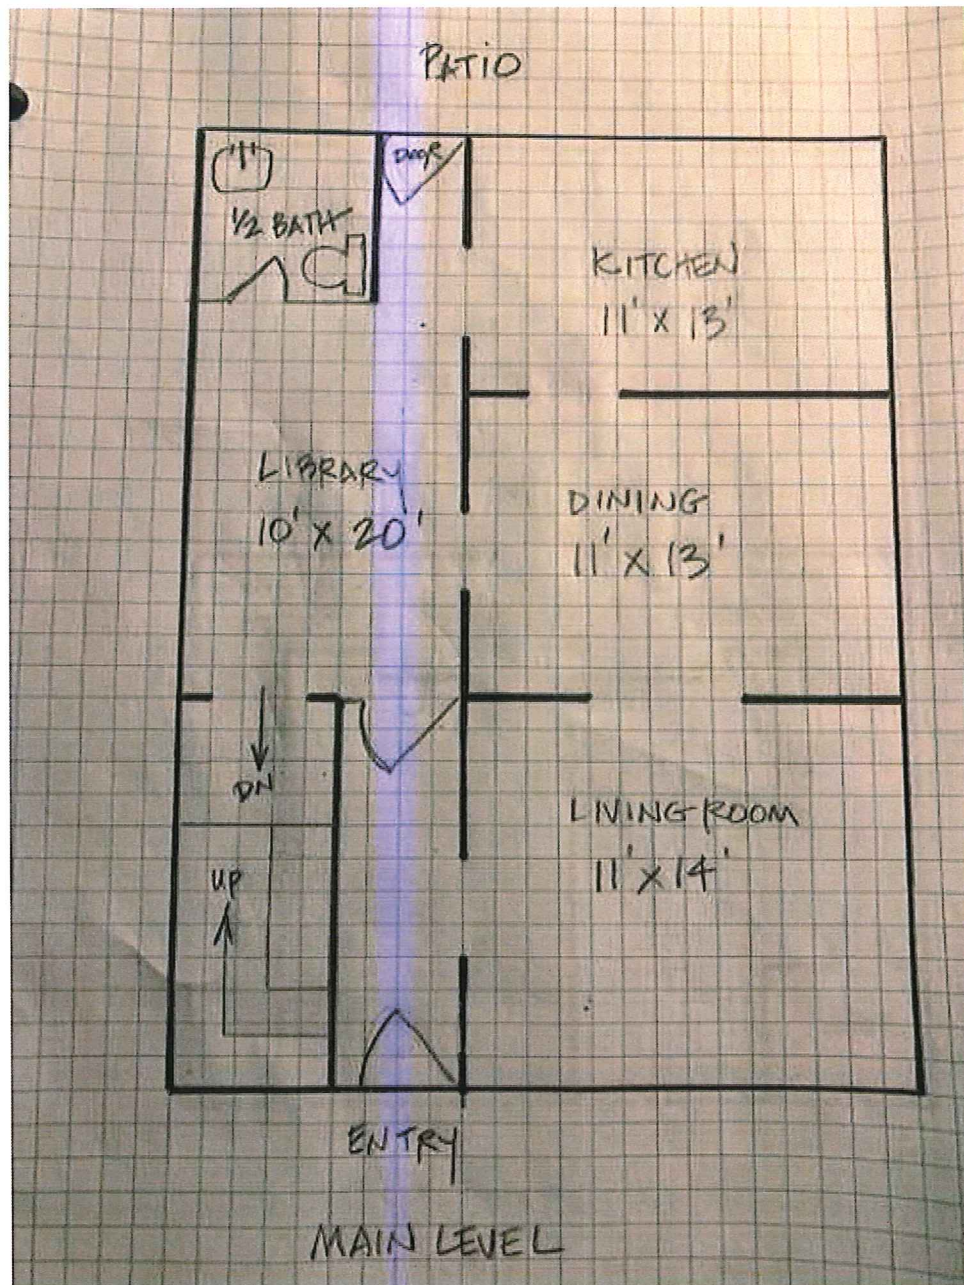 PATIO
DOOR
1/2 BATH
KITCHEN
11' X 13'
LIBRARY
10' X 20'
DINING
11' X 13'
DN
LIVING ROOM
11' X 14'
UP
ENTRY
MAIN LEVEL